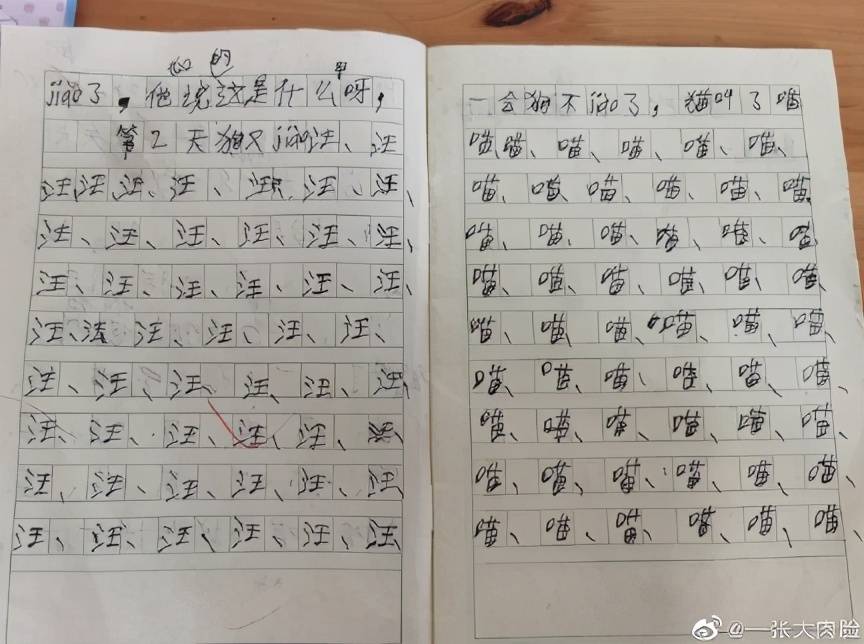 jiào了，他说这是什么呀，
第2天狗又jiào汪、汪
汪汪、汪、汪、汪、汪、汪、
汪、汪、汪、汪、汪、汪、
汪、汪、汪、汪、汪、汪、
汪、汪、汪、汪、汪、汪、
汪、汪、汪、汪、汪、汪、
汪、汪、汪、汪、汪、
汪、汪、汪、汪、汪、汪、
汪、汪、汪、汪、汪、汪、
一会狗不jiào了，猫叫了喵
喵喵、喵、喵、喵、喵、
喵、喵、喵、喵、喵、喵、
喵、喵、喵、喵、喵、喵、
喵、喵、喵、喵、喵、喵、
喵、喵、喵、喵、喵、喵、
喵、喵、喵、喵、喵、喵、
喵、喵、喵、喵、喵、喵、
喵、喵、喵、喵、喵、喵、
喵、喵、喵、喵、喵、喵、
@一张大肉险